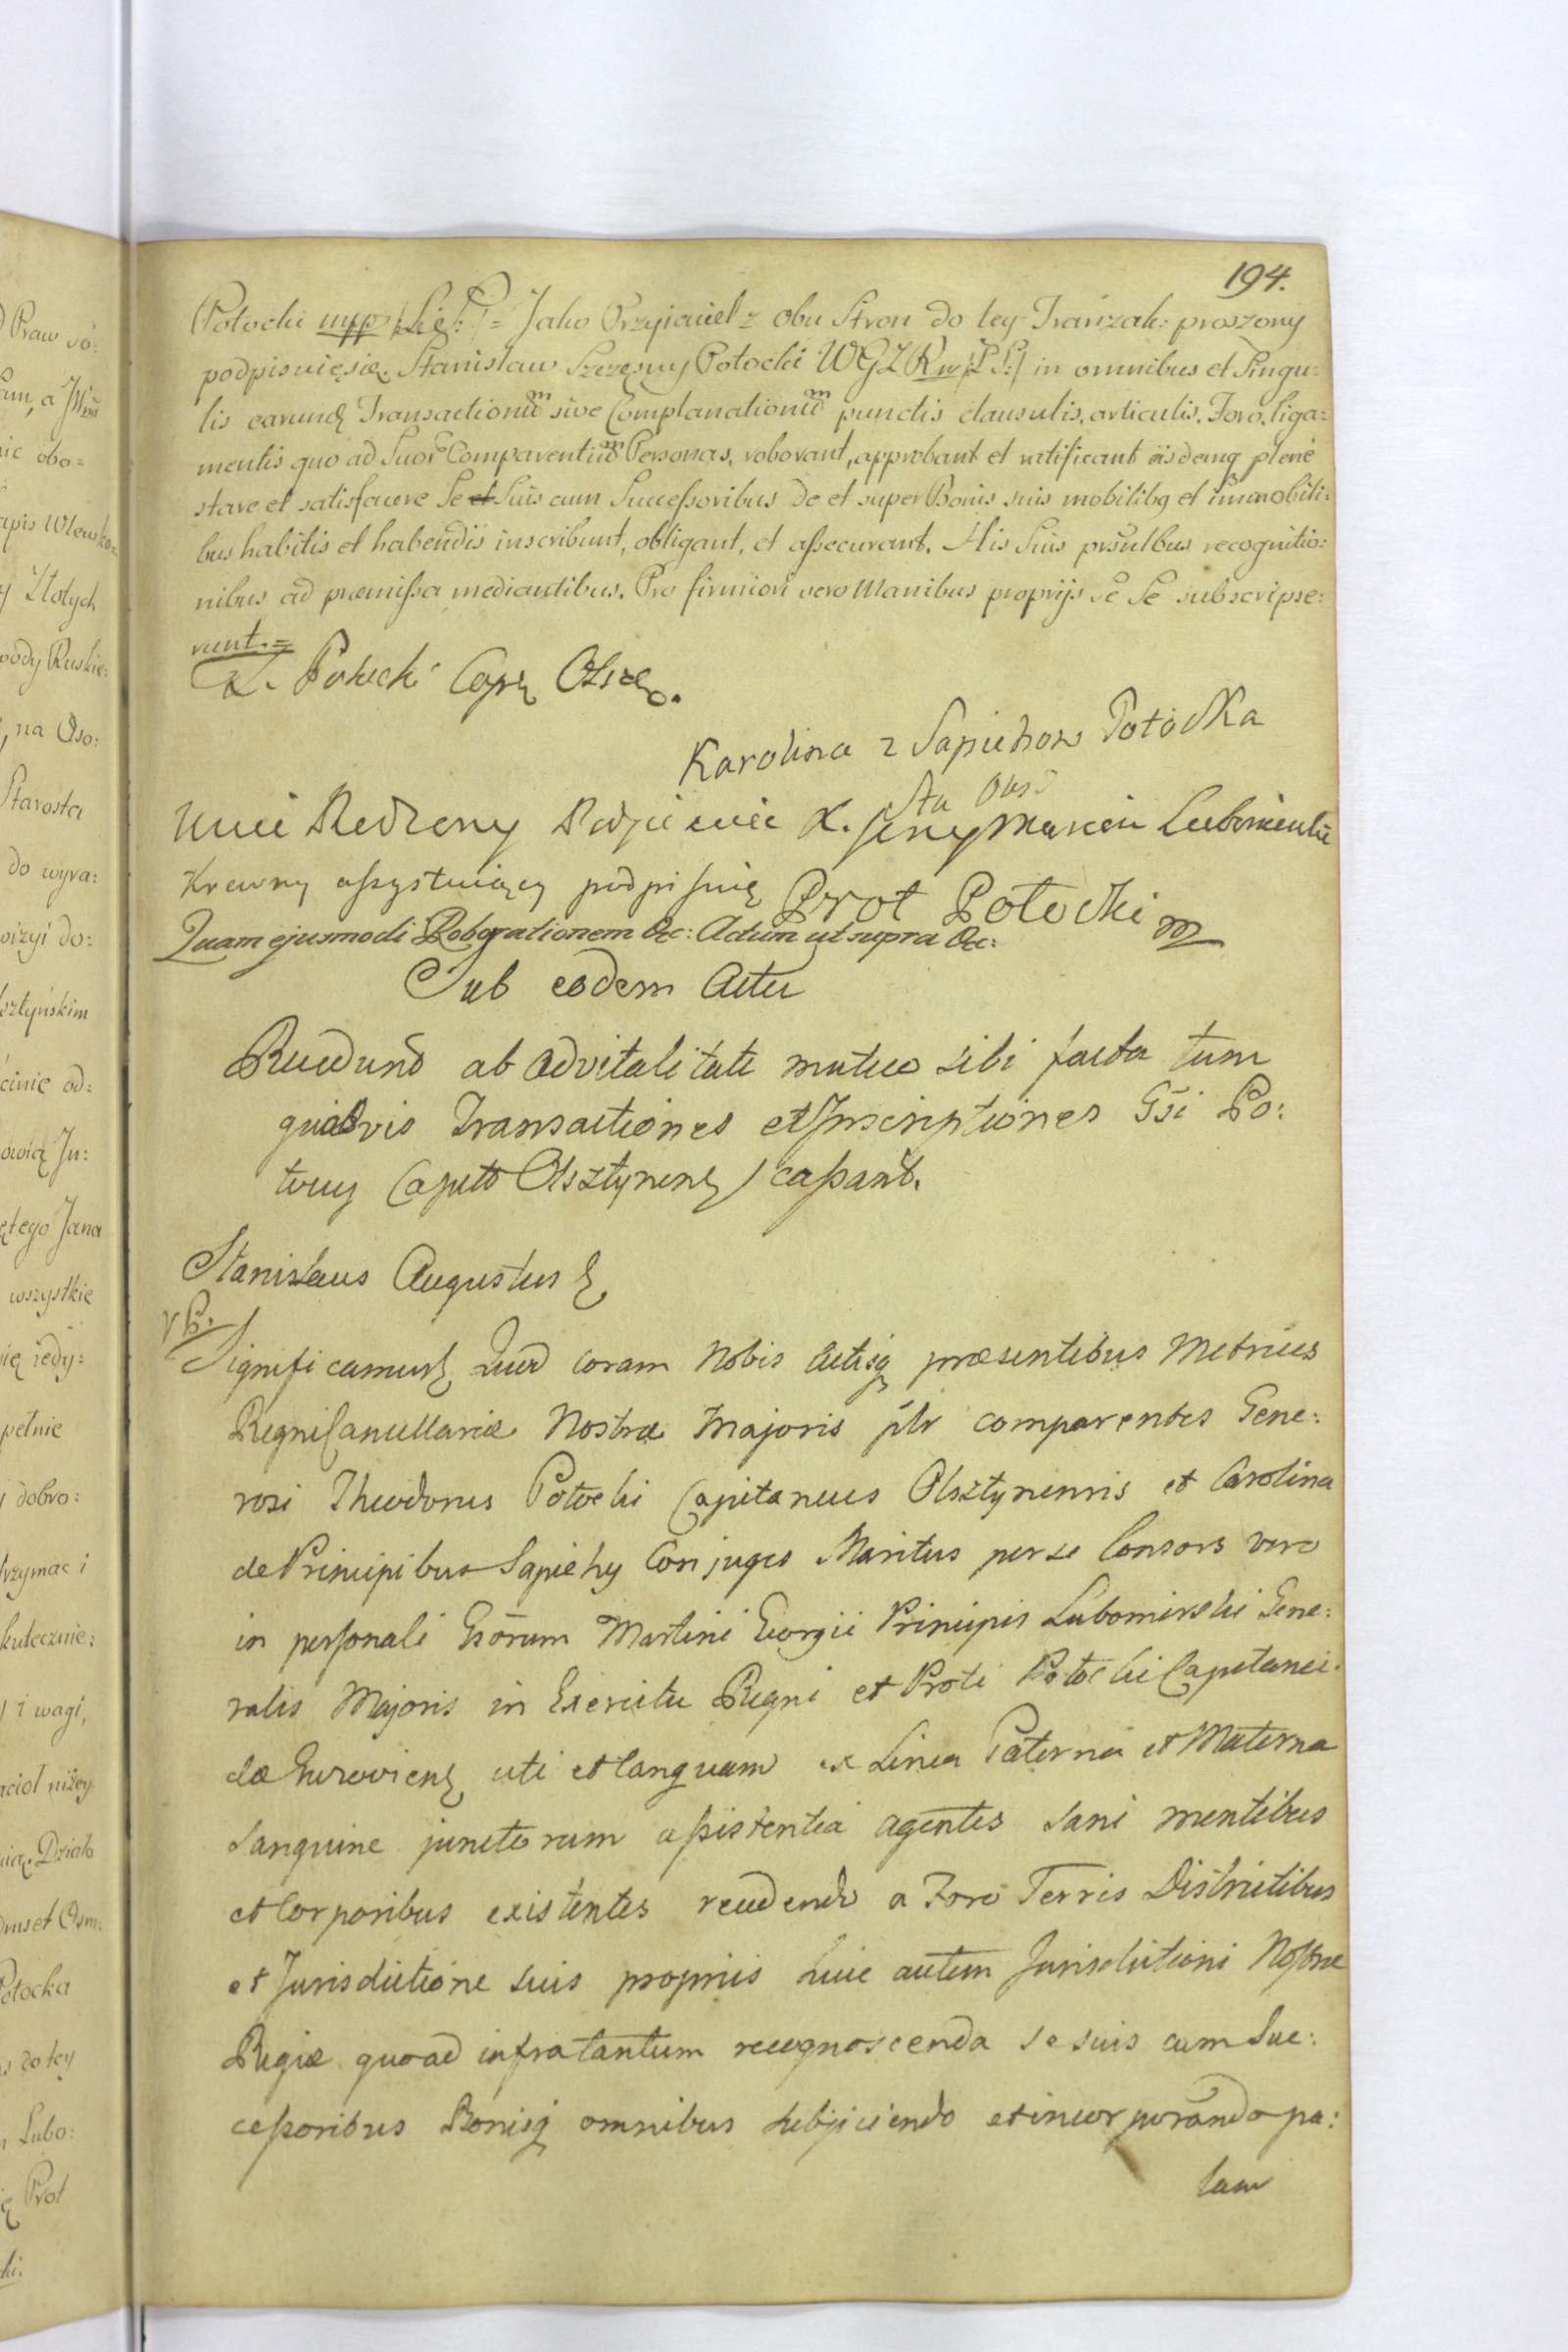 194.
Potocki mpp /:L:S:/ = Jako Przyiaciel z obu Stron do tey Tranzak: proszony
podpisuię się. Stanisław Szczęsny Potocki WGZR mp /:L:S:/ in omnibus et Singu:
lis earund Transactionum sive Complanationum punctis clausulis, articulis, Foro, liga:
mentis quo ad Suor Comparentium Personas, roborant, approbant et ratificant iisdemq plené
stare et satisfacere Se et Suis cum Successoribus de et super Bonis suis mobilibq et immobili:
bus habitis et habendis inscribunt, obligant, et assecurant. His Suis prsntbus recognitio:
nibus ad præmissa mediantibus. Pro firmiori vero Manibus proprijs se Se subscripse:
runt. =
Potocki Cap Olsz.
Karolina z Sapiehow Potocka
Sta Ols
X. Marcin Lubomirski
Krewny assystuiący podpisuię Prot Potocki m
Quam ejusmodi Roborationem &c: Actum ut supra &c:
Sub eodem Actu
Recedund ab advitalitate mutuo sibi facta tum
quasvis Transactiones et Inscriptiones Gsi Po:
tocy Capita Olsztynens cassant.
Stanislaus Augustus
Significamus Quod coram Nobis Actisq præsentibus Metrices
Regni Cancellariæ Nostræ Majoris plr comparentes Gene:
rosi Theodorus Potocki Capitaneus Olsztynensis et Carolina
de Principibus Sapiehy Conjuges Maritus per se Consors vero
in personali Gsorum Martini Georgii Principis Lubomirski Gene:
ralis Majoris in Exercitu Regni et Proti Potocki Capitanei
de Guroviens uti et tanquam ex Linea Paterna et Materna
sanguine junctorum assistentia agentes sani mentibus
et Corporibus existentes recedendo a Foro Terris Districtibus
et Jurisdictione suis propriis huic autem Jurisdictioni Nostræ
Regiæ quoad infra tantum recognoscenda se suis cum Suc:
cessoribus Bonisq omnibus subjiciendo et incorporando pa:
lam
d Praw
am, a
nie obo=
apis
y Złotych
wody Ruskie:
, na Oso:
Starosta
do wyra:
wizyi do:
lsztyńskim
ącinie od:
Ju:
ętego Jana
wszystkie
się iedy:
pełnie
y dobro:
trzymac i
kutecznie:
y i wagi,
aciol niżey
Działo
Potocka
s do tey
, Lubo:
ę Prot
ki.